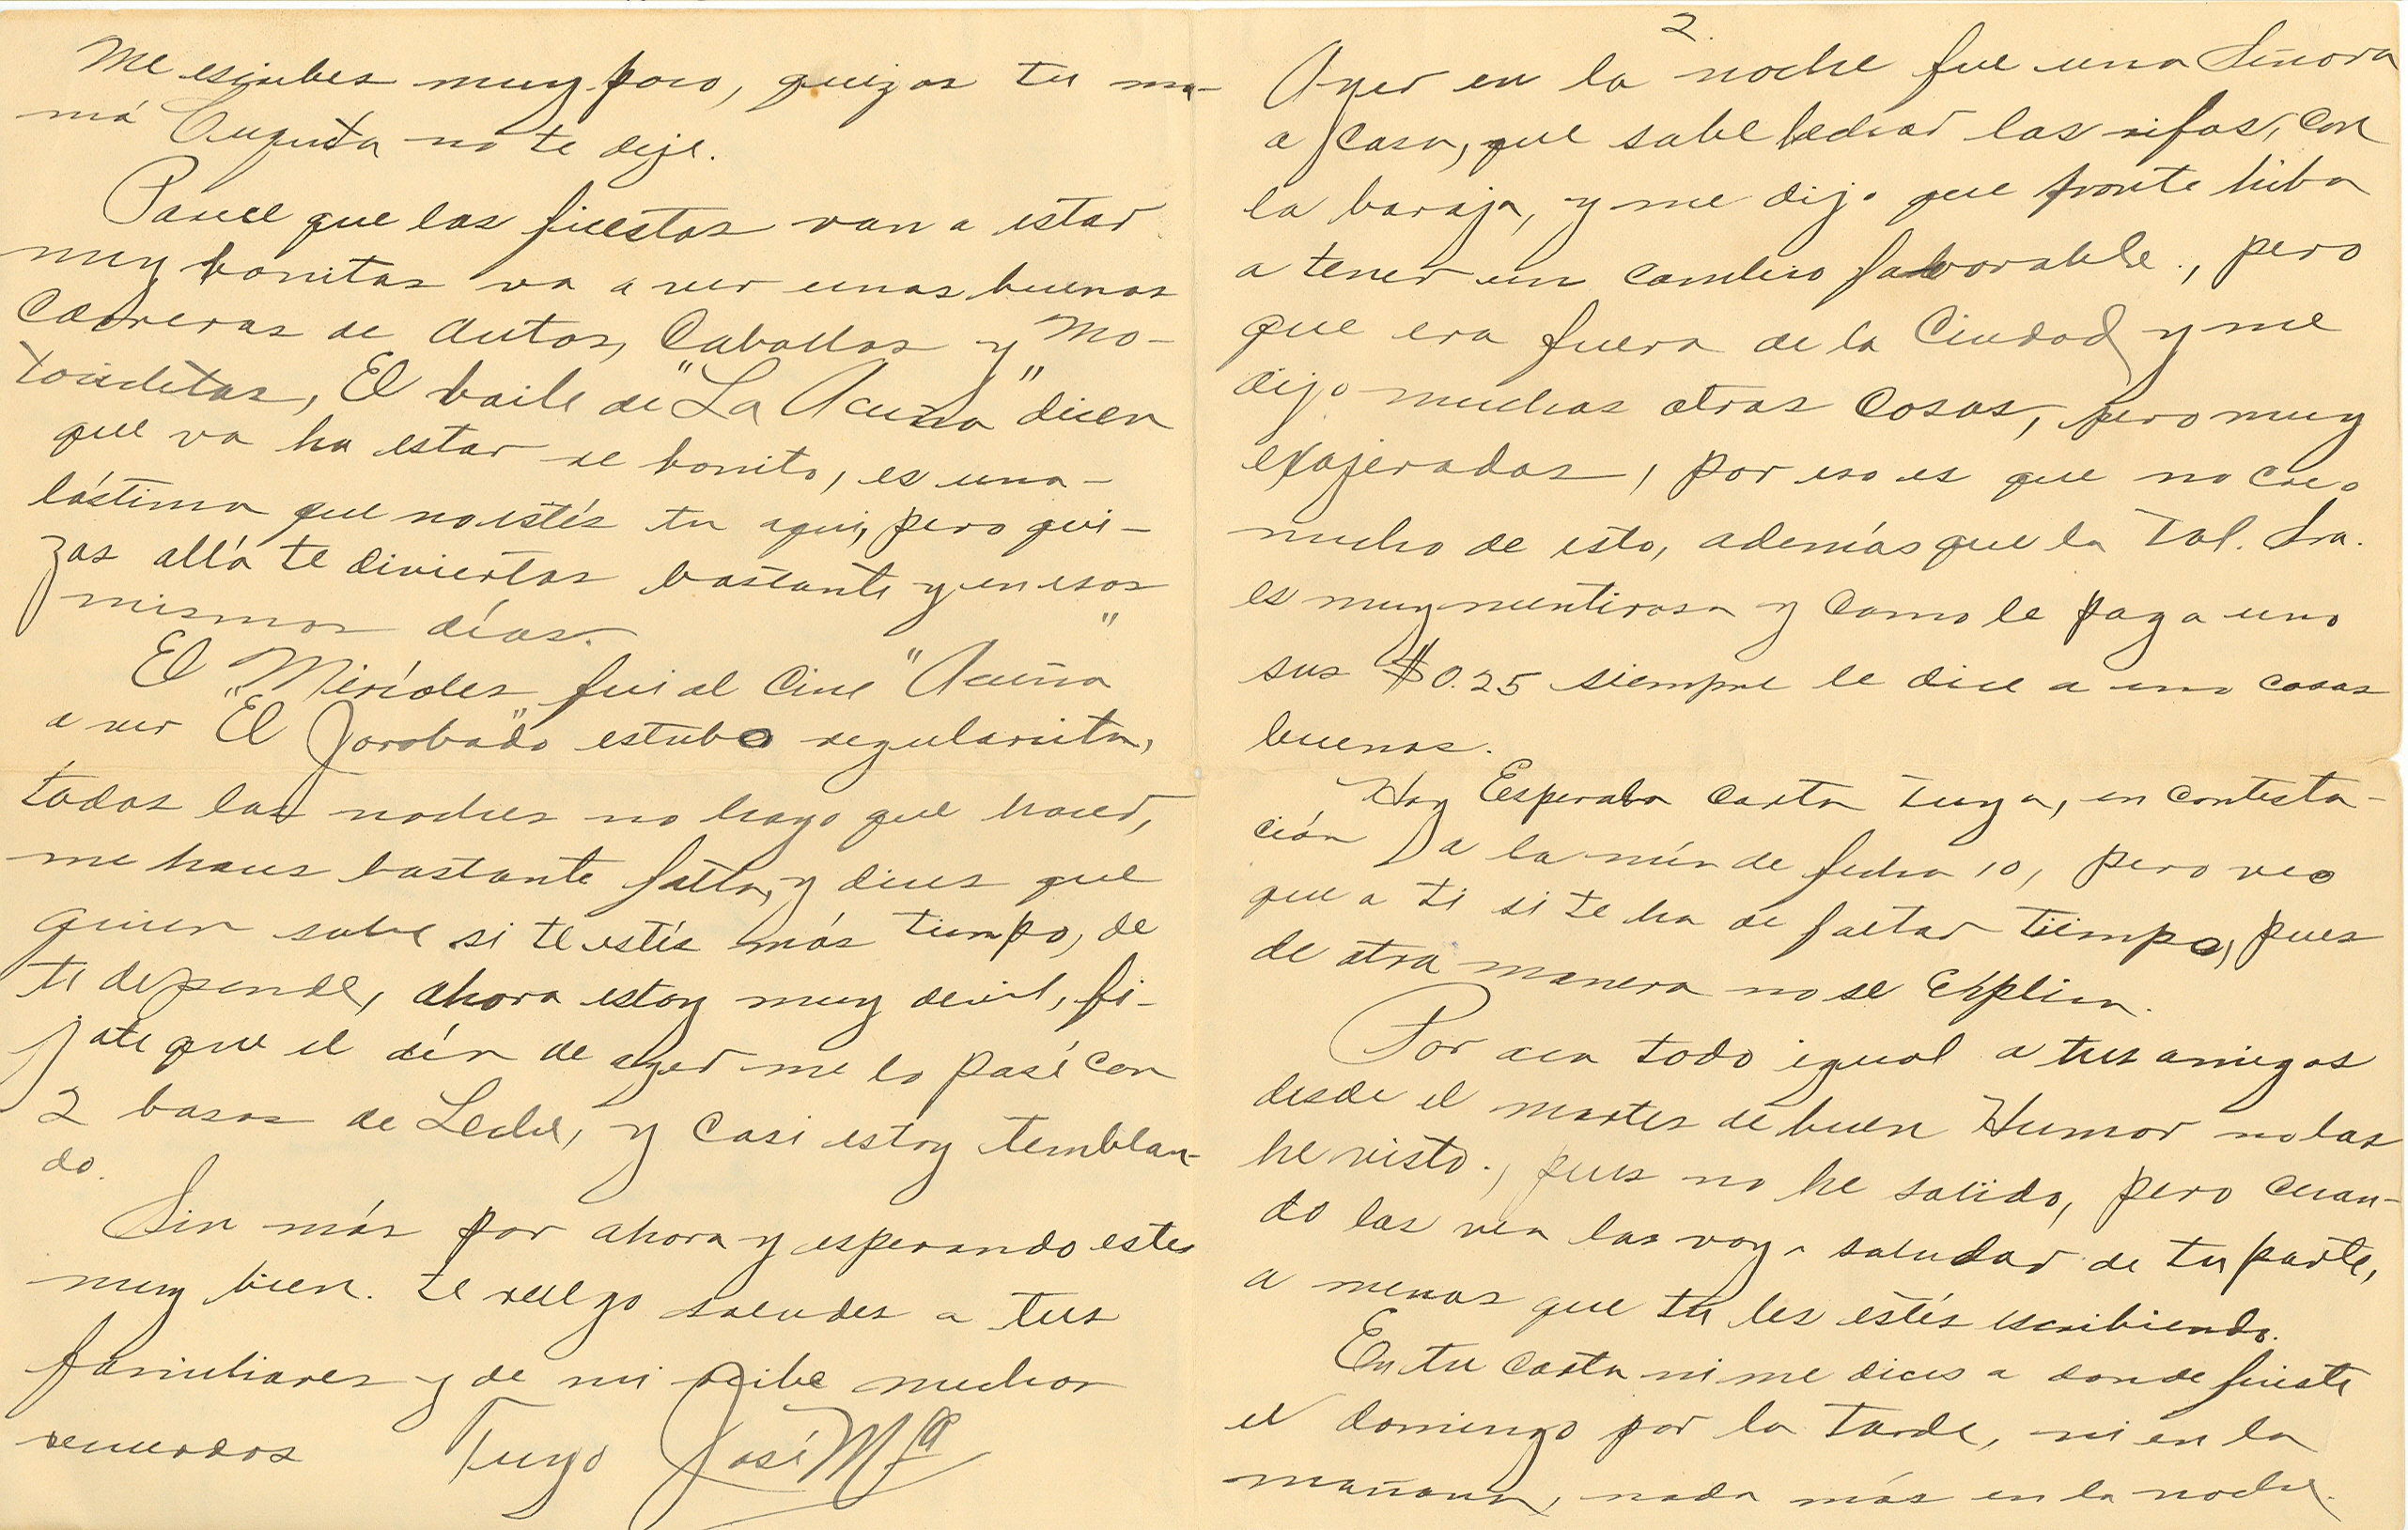 2.
Ayer en la noche fue una Señora
a casa, que sabe hechar las rifas, con
la baraja, y me dijo que pronto hiba
a tener un cambio faborable., pero
que era fuera de la Ciudad y me
dijo muchas otras Cosas, pero muy
exajeradas, por eso es que no creo
mucho de esto, además que la Tal. Sra.
es muy mentirosa y como le paga uno
sus $0.25 siempre le dice a uno cosas
buenas.
Hoy Esperaba carta Tuya, en contesta-
ción a la mía de fecha 10, pero veo
que a ti si te ha de faltar tiempo, pues
de otra manera no se Explica.
Por aca todo igual a tus amigas
desde el martes de buen Humor no las
he visto., pues no he salido, pero cuan-
do las vea las voy a saludar de tu parte,
a menos que tu les estés escribiendo.
En tu carta ni me dices a donde fuiste
el domingo por la tarde, ni en la
mañana, nada más en la noche.
Me escribes muy poco, quizas tu ma-
má Cuquita no te deje.
Parece que las fiestas van a estar
muy bonitas va a ver unas buenas
carreras de autos, Caballos y Mo-
tocicletas, El baile de "La Acuña" dicen
que va ha estar re bonito, es una
lástima que no estés tu aqui, pero qui-
zas allá te diviertas bastante y en esos
mismos días.
El Miércoles fui al Cine "Acuña"
a ver "El Jorobado" estubo regularcita,
todas las noches no hayo que hacer,
me haces bastante falta, y dices que
quien sabe si te estés más tiempo, de
ti depende, ahora estoy muy devil, fi-
jate que el día de ayer me lo pasé con
2 basos de Leche, y casi estoy temblan-
do.
Sin más por ahora y esperando estes
muy bien. te ruego saludes a tus
familiares y de mi recibe muchos
recuerdos Tuyo José Ma